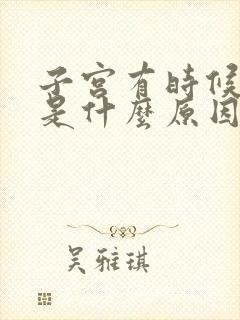 子宫有時候
是什麼原因
吴雅琪